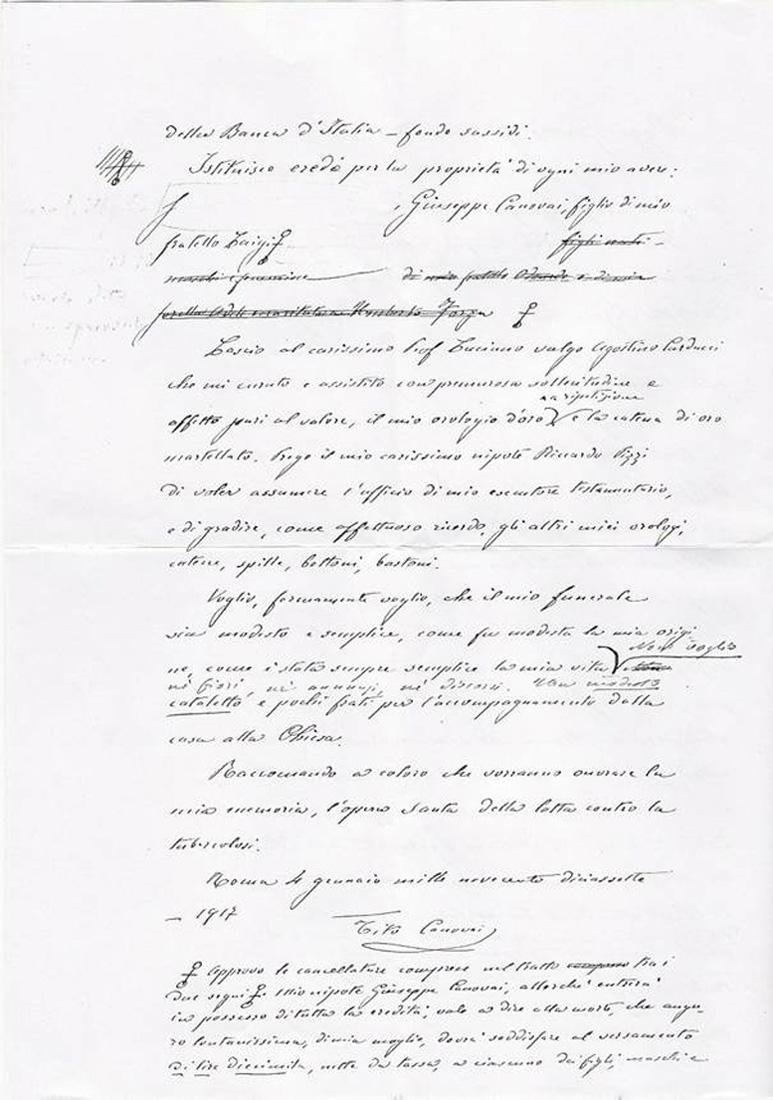 della Banca d'Italia – fondo sussidi.
Istituisco erede per la proprietà di ogni mio avere:
Giuseppe Canovai, figlio di mio
fratello Luigi
figli nati
maschi e femmine di mio fratello Odoardo e di mia
sorella maritata a Umberto Forza
Lascio al carissimo Prof Luciano vulgo Agostino Carducci
che mi curato e assistito con premurosa sollecitudine e
a ripetizione
affetto pari al valore, il mio orologio d'oro e la catena di oro
martellato. Prego il mio carissimo nipote Riccardo Pizzi
di voler assumere l'ufficio di mio esecutore testamentario,
e di gradire, come affettuoso ricordo, gli altri miei orologi,
catene, spille, bottoni, bastoni.
Voglio, fermamente voglio, che il mio funerale
sia modesto e semplice, come fu modesta la mia origi
Non voglio
ne, come è stata sempre semplice la mia vita
né fiori, né annunzi, né discorsi. Un modesto
cataletto e pochi frati per l'accompagnamento dalla
casa alla Chiesa.
Raccomando a coloro che vorranno onorare la
mia memoria, l'opera santa della lotta contro la
tubercolosi.
Roma 4 gennaio mille novecento diciassette
– 1917
Tito Canovai
Approvo le cancellature comprese nel tratto tra i
due segni Mio nipote Giuseppe Canovai, allorché entrerà
in possesso di tutta la eredità, vale a dire alla morte, che augu-
ro lontanissima, di mia moglie, dovrà soddisfare al versamento
di lire diecimila, nette da tassa, a ciascuno dei figli, maschi e